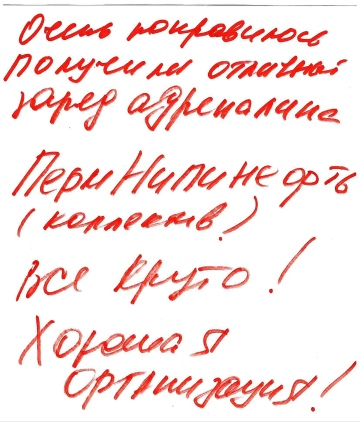 Очень понравилось
Получили отличный
заряд адреналина
ПермНипинефть
(коллектив)
Все Круто!
Хорошая
организация!